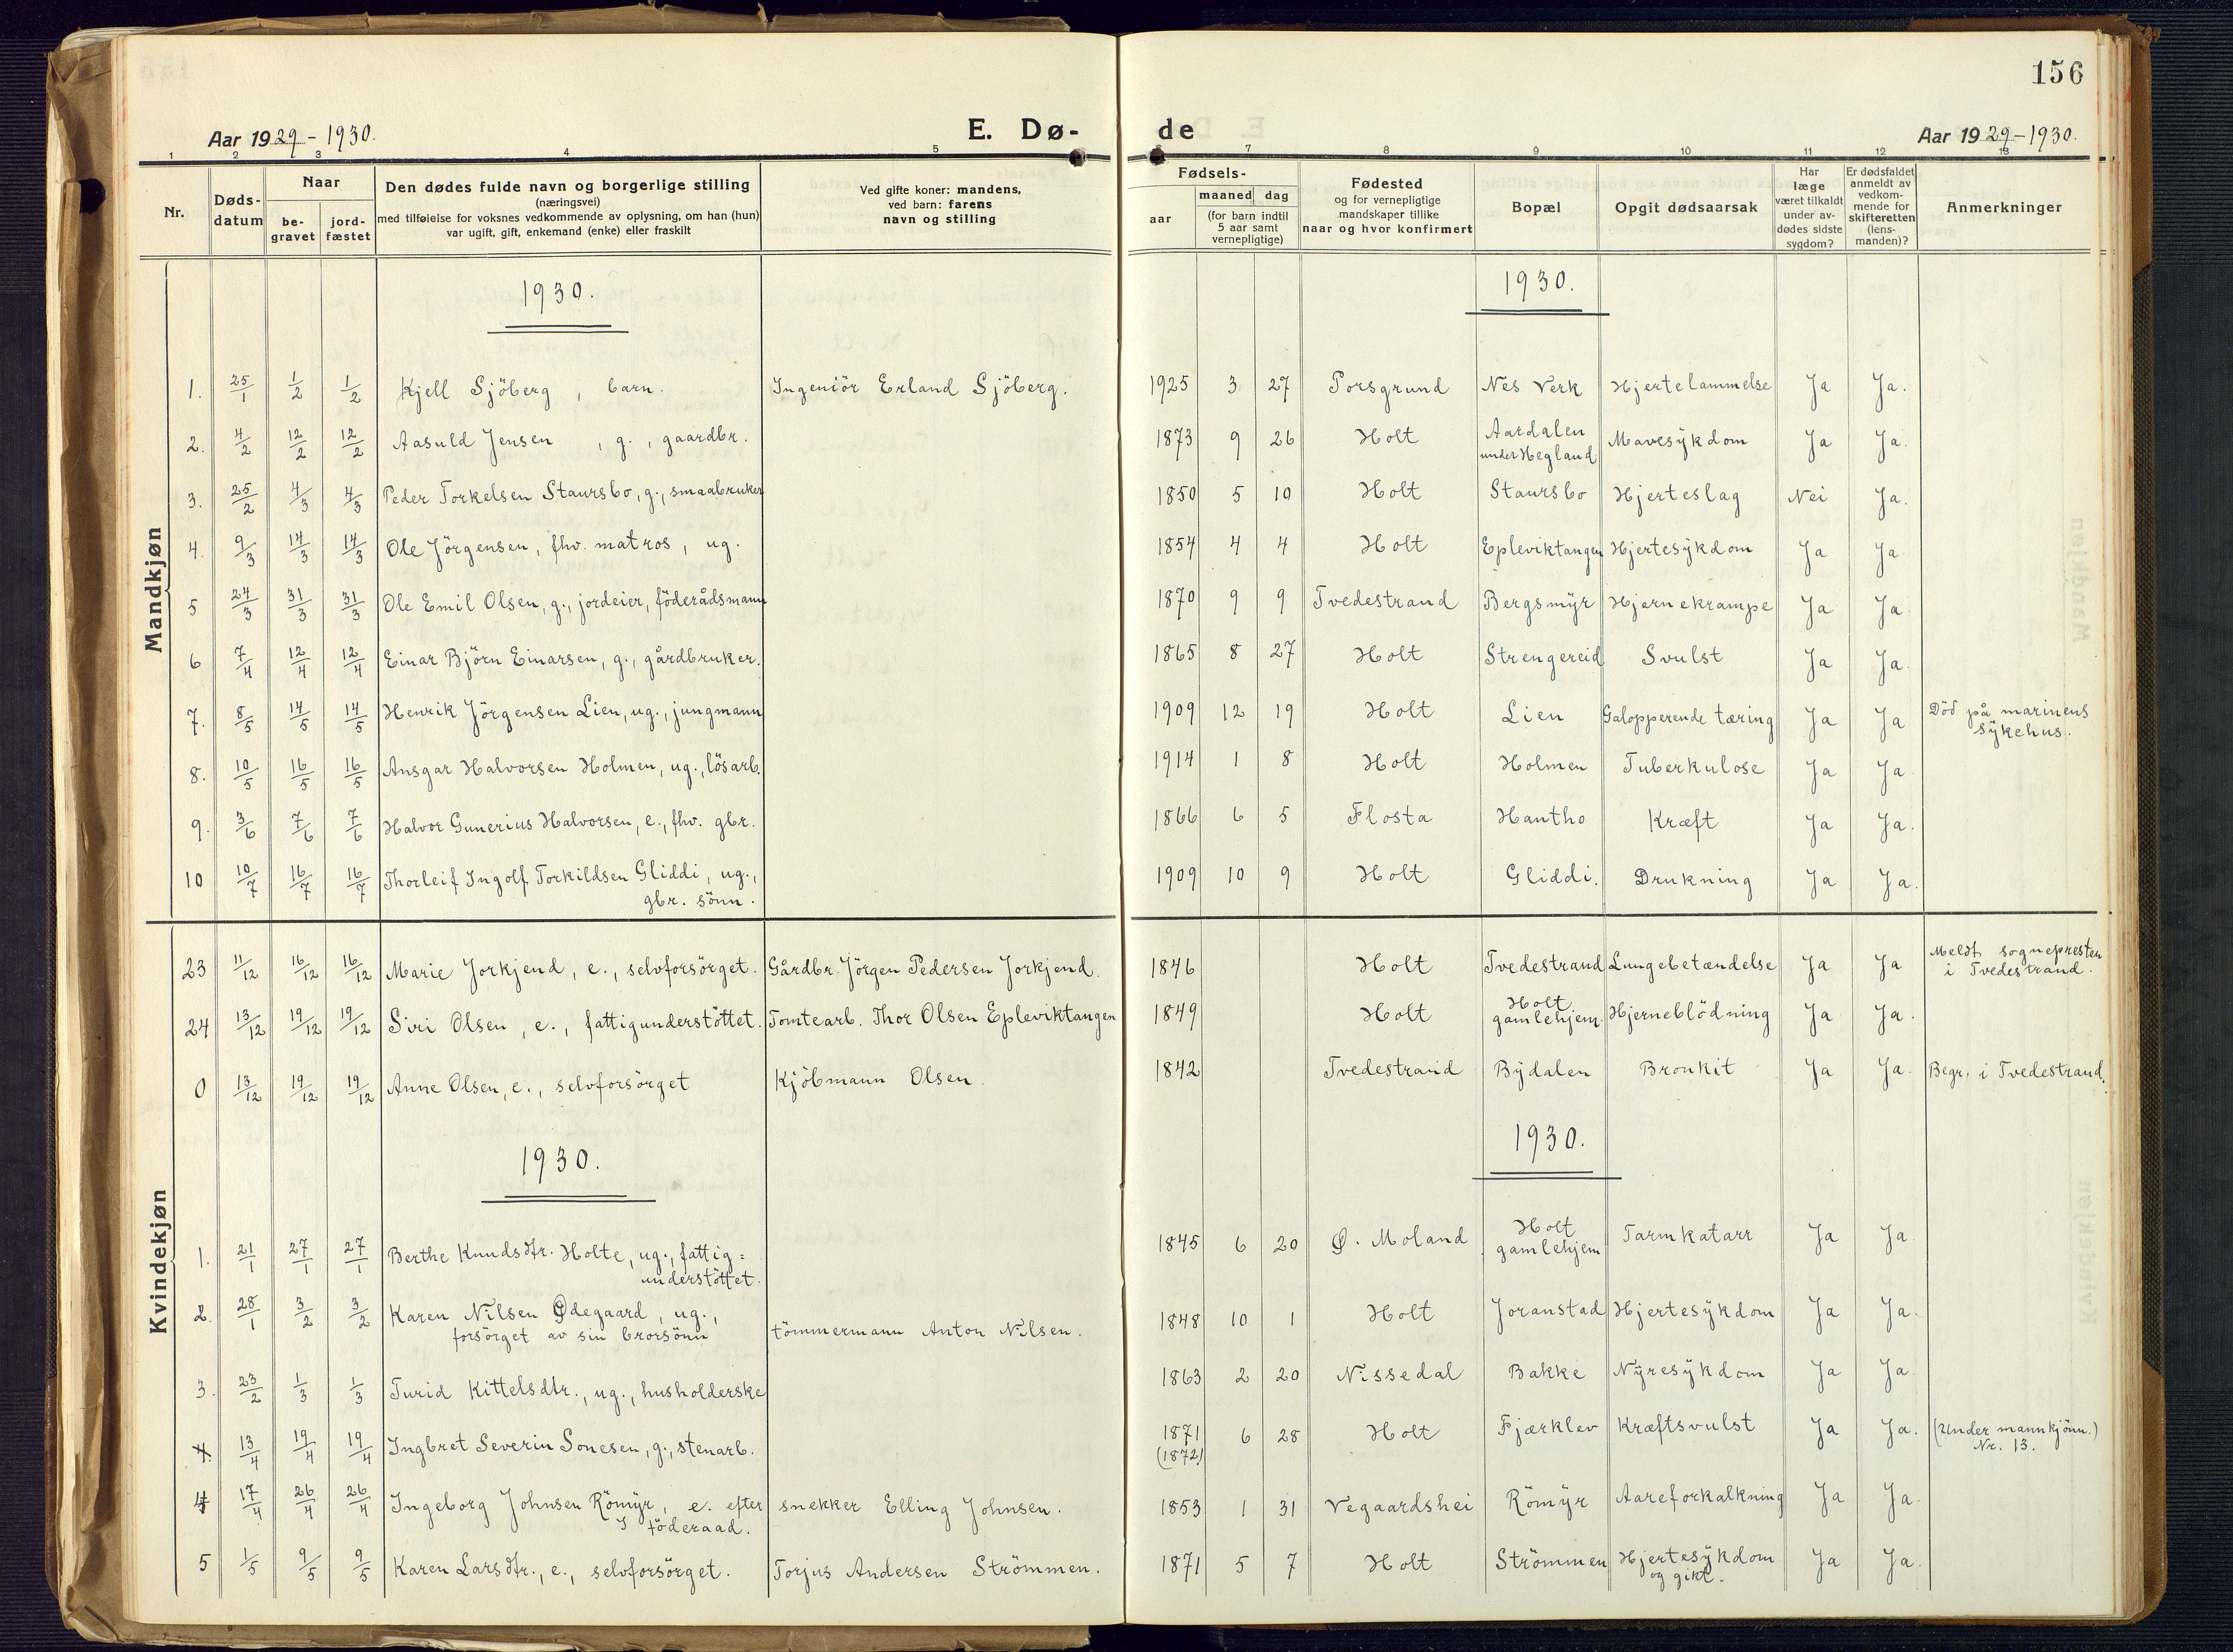 156
Aar 1929-1930.
E. Dø-
de
Aar 1929-1930.
1 2 3 4 5
7 8 9 10 11 12 13
Nr.
Døds-
datum
Naar
be-
gravet
jord-
fæstet
Den dødes fulde navn og borgerlige stilling
(næringsvei)
med tilføielse for voksnes vedkommende av oplysning, om han (hun)
var ugift, gift, enkemand (enke) eller fraskilt
Ved gifte koner: mandens,
ved barn: farens
navn og stilling
Fødsels-
aar
maaned dag
(for barn indtil
5 aar samt
vernepligtige)
Fødested
og for vernepligtige
mandskaper tillike
naar og hvor konfirmert
Bopæl
Opgit dødsaarsak
Har
læge
været tilkaldt
under av-
dødes sidste
sygdom?
Er dødsfaldet
anmeldt av
vedkom-
mende for
skifteretten
(lens-
manden)?
Anmerkninger
Mandkjøn
1930.
1930.
1. 25/1 1/2 1/2 Kjell Sjöberg, barn. Ingeniör Erland Sjöberg. 1925 3 27 Porsgrund Nes Verk Hjertelammelse Ja Ja.
2. 4/2 12/2 12/2 Aasuld Jensen, g., gaardbr. 1873 9 26 Holt Aardalen Mavesykdom Ja Ja.
under Hegland
3. 25/2 4/3 4/3 Peder Torkelsen Staursbo, g., smaabruker 1850 5 10 Holt Staursbo Hjerteslag Nei Ja.
4. 9/3 14/3 14/3 Ole Jörgensen, fhv. matros, ug. 1854 4 4 Holt Epleviktangen Hjertesykdom Ja Ja
5 24/3 31/3 31/3 Ole Emil Olsen, g., jordeier, föderådsmann 1870 9 9 Tvedestrand Bergsmyr Hjernekrampe Ja Ja.
6 7/4 12/4 12/4 Einar Björn Einarsen, g., gårdbruker. 1865 8 27 Holt Strengereid Svulst Ja Ja.
7. 8/5 14/5 14/5 Henrik Jörgensen Lien, ug., jungmann 1909 12 19 Holt Lien Galopperende tæring Ja Ja Död på marinens
sykehus.
8. 10/5 16/5 16/5 Ansgar Halvorsen Holmen, ug., lösarb. 1914 1 8 Holt Holmen Tuberkulose Ja Ja
9. 3/6 7/6 7/6 Halvor Gunerius Halvorsen, e., fhv. gbr. 1866 6 5 Flosta Hantho Kræft Ja Ja.
10 10/7 16/7 16/7 Thorleif Ingolf Torkildsen Gliddi, ug., 1909 10 9 Holt Gliddi. Drukning Ja Ja.
gbr. sönn.
Kvindekjøn
23 11/12 16/12 16/12 Marie Jorkjend, e., selvforsörget. Gårdbr. Jörgen Pedersen Jorkjend. 1846 Holt Tvedestrand Lungebetændelse Ja Ja Meldt sognepresten
i Tvedestrand.
24 13/12 19/12 19/12 Siri Olsen, e., fattigunderstöttet. Tomtearb. Thor Olsen Epleviktangen 1849 Holt Holt
gamlehjem. Hjerneblödning Ja Ja.
0 13/12 19/12 19/12 Anne Olsen, e., selvforsörget Kjöbmann Olsen. 1842 Tvedestrand Bydalen Bronkit Ja Ja. Begr. i Tvedestrand.
1930.
1930.
1. 21/1 27/1 27/1 Berthe Knudsdtr. Holte, ug., fattig=
understöttet. 1845 6 20 Ø. Moland Holt
gamlehjem Tarmkatarr Ja Ja
2. 28/1 3/2 3/2 Karen Nilsen Ødegaard, ug.,
forsörget av sin brorsönn tömmermann Anton Nilsen. 1848 10 1 Holt Joranstad Hjertesykdom Ja Ja.
3. 23/2 1/3 1/3 Turid Kittelsdtr., ug., husholderske 1863 2 20 Nissedal Bakke Nyresykdom Ja Ja.
4. 13/4 19/4 19/4 Ingbret Severin Sonesen, g., stenarb. 1871
(1872) 6 28 Holt Fjærklev Kræftsvulst Ja Ja. (Under mannkjönn.)
Nr. 13.
4 17/4 26/4 26/4 Ingeborg Johnsen Römyr, e. efter snekker Elling Johnsen. 1853 1 31 Vegaardshei Römyr Aareforkalkning Ja Ja.
föderaad.
5 1/5 9/5 9/5 Karen Larsdtr., e., selvforsörget. Torjus Andersen Strömmen. 1871 5 7 Holt Strömmen Hjertesykdom Ja Ja.
og gikt.